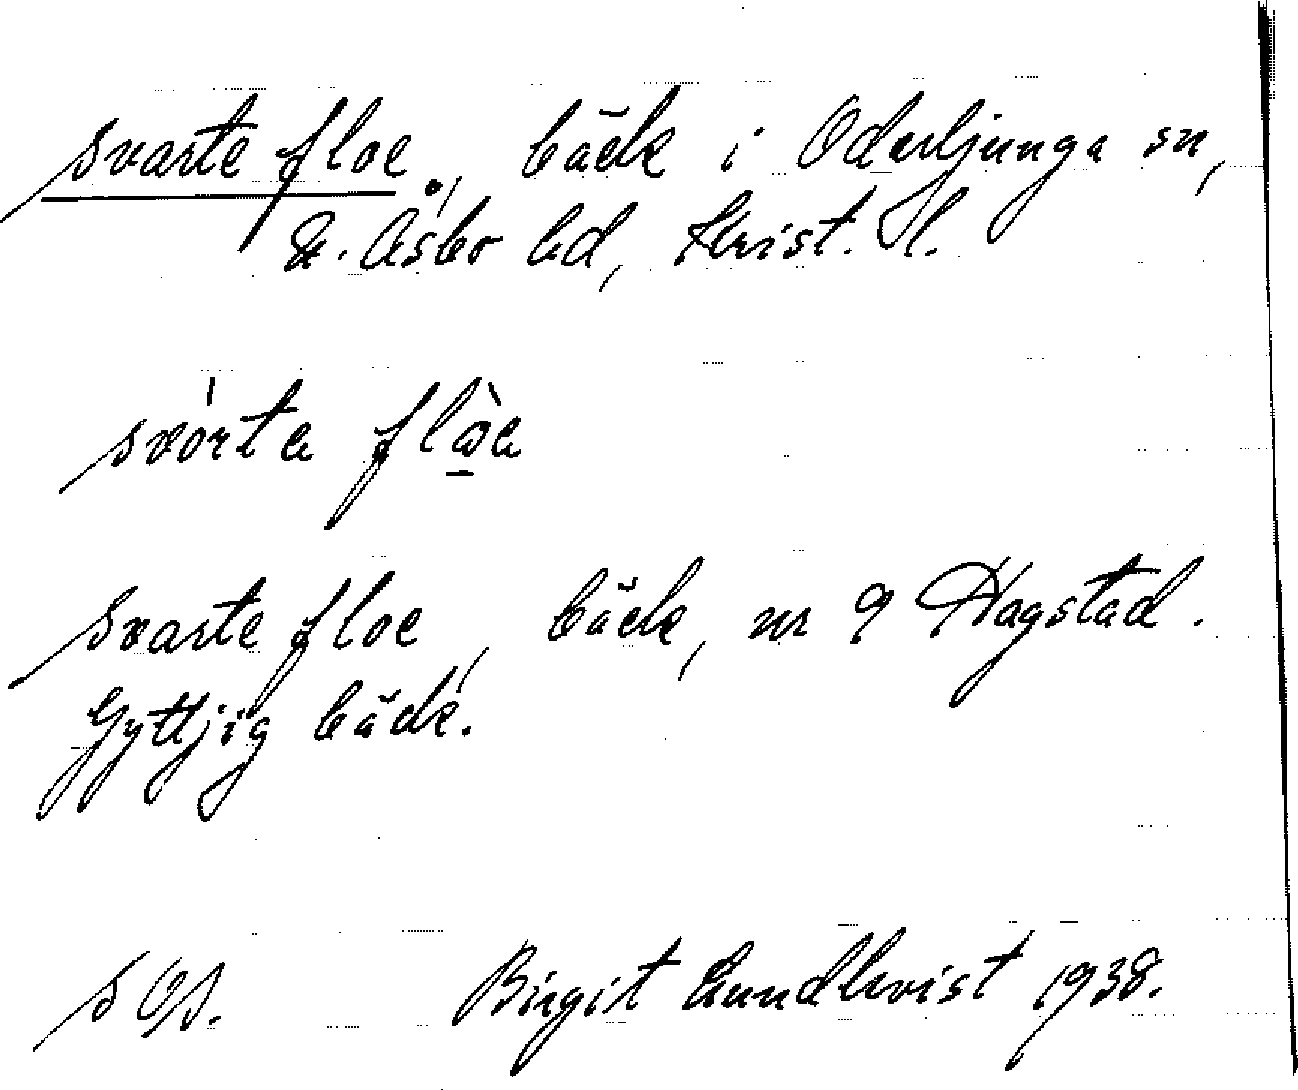 svarte floe, bäck i Oderljunga sn,
N. Åsbo hd, Krist. l.
svarte floe, bäck, nr 9 Hagstad.
Gyttjig bäck.
Birgit Lundkvist 1938.